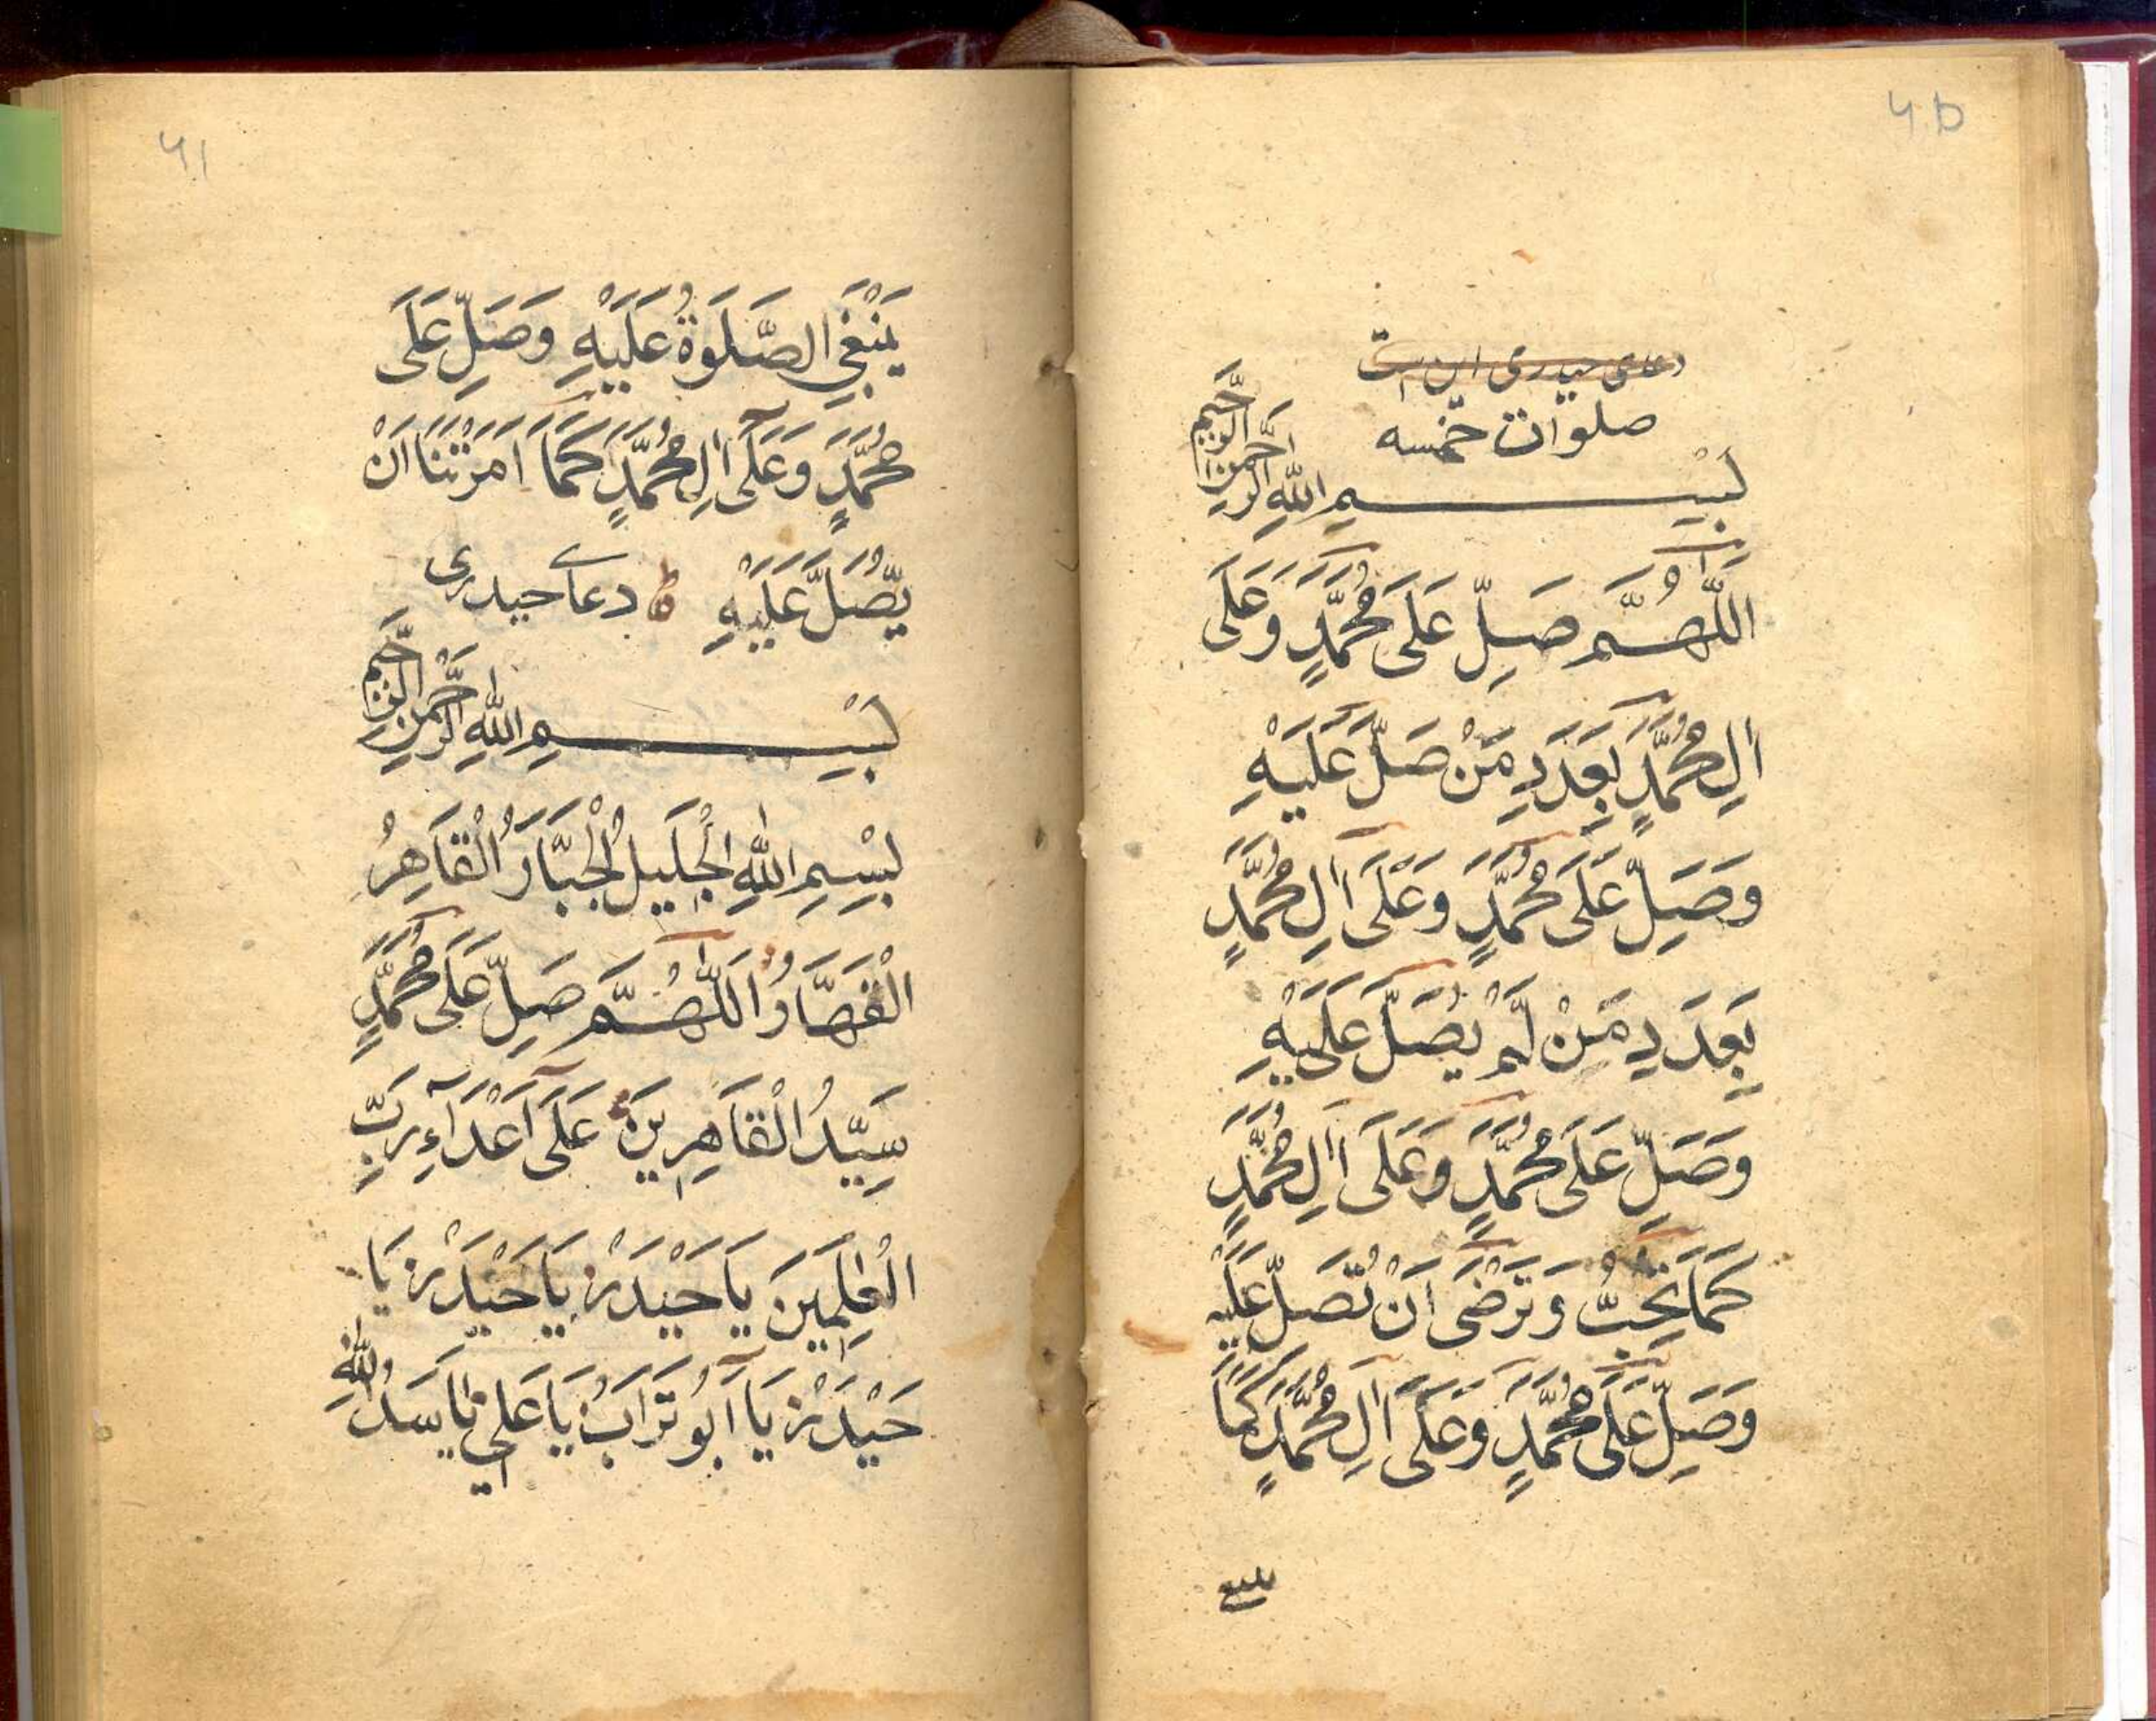 ۶۵
دعای حیدری این است
صلوات خمسه
بِسْمِ اللّٰهِ الرَّحْمٰنِ الرَّحِیْمِ
اَللّٰهُمَّ صَلِّ عَلَى مُحَمَّدٍ وَعَلَى
اٰلِ مُحَمَّدٍ بِعَدَدِ مَنْ صَلَّ عَلَيْهِ
وَصَلِّ عَلَى مُحَمَّدٍ وَعَلَى اٰلِ مُحَمَّدٍ
بِعَدَدِ مَنْ لَمْ يُصَلَّ عَلَيْهِ
وَصَلِّ عَلَى مُحَمَّدٍ وَعَلَى اٰلِ مُحَمَّدٍ
كَمَا تُحِبُّ وَتَرْضَى اَنْ تُصَلّ عَلَيْهِ
وَصَلِّ عَلَى مُحَمَّدٍ وَعَلَى اٰلِ مُحَمَّدٍ كَمَا
ینبغی
۶۱
يَنْبَغِي الصَّلَوةُ عَلَيْهِ وَصَلِّ عَلَى
مُحَمَّدٍ وَعَلَى اٰلِ مُحَمَّدٍ كَمَا اَمَرْتَنَا اَنْ
يُّصَلَّ عَلَيْهِ دعاے حیدری
بِسْمِ اللّٰهِ الرَّحْمٰنِ الرَّحِیْمِ
بِسْمِ اللّٰهِ الْجَلِيلُ الْجَبَّارُ الْقَاهِرُ
الْقَهَّارُ اَللّٰهُمَّ صَلِّ عَلَى مُحَمَّدٍ
سَيِّدُ الْقَاهِرِينَ عَلَى اَعْدَآءِ رَبِّ
الْعٰلَمِيْنَ يَا حَيْدَرْ يَا حَيْدَرْ يَا
حَيْدَرْ يَا اَبُو تُرَابُ يَا عَلِي يَا سَدُ اللّٰهِ